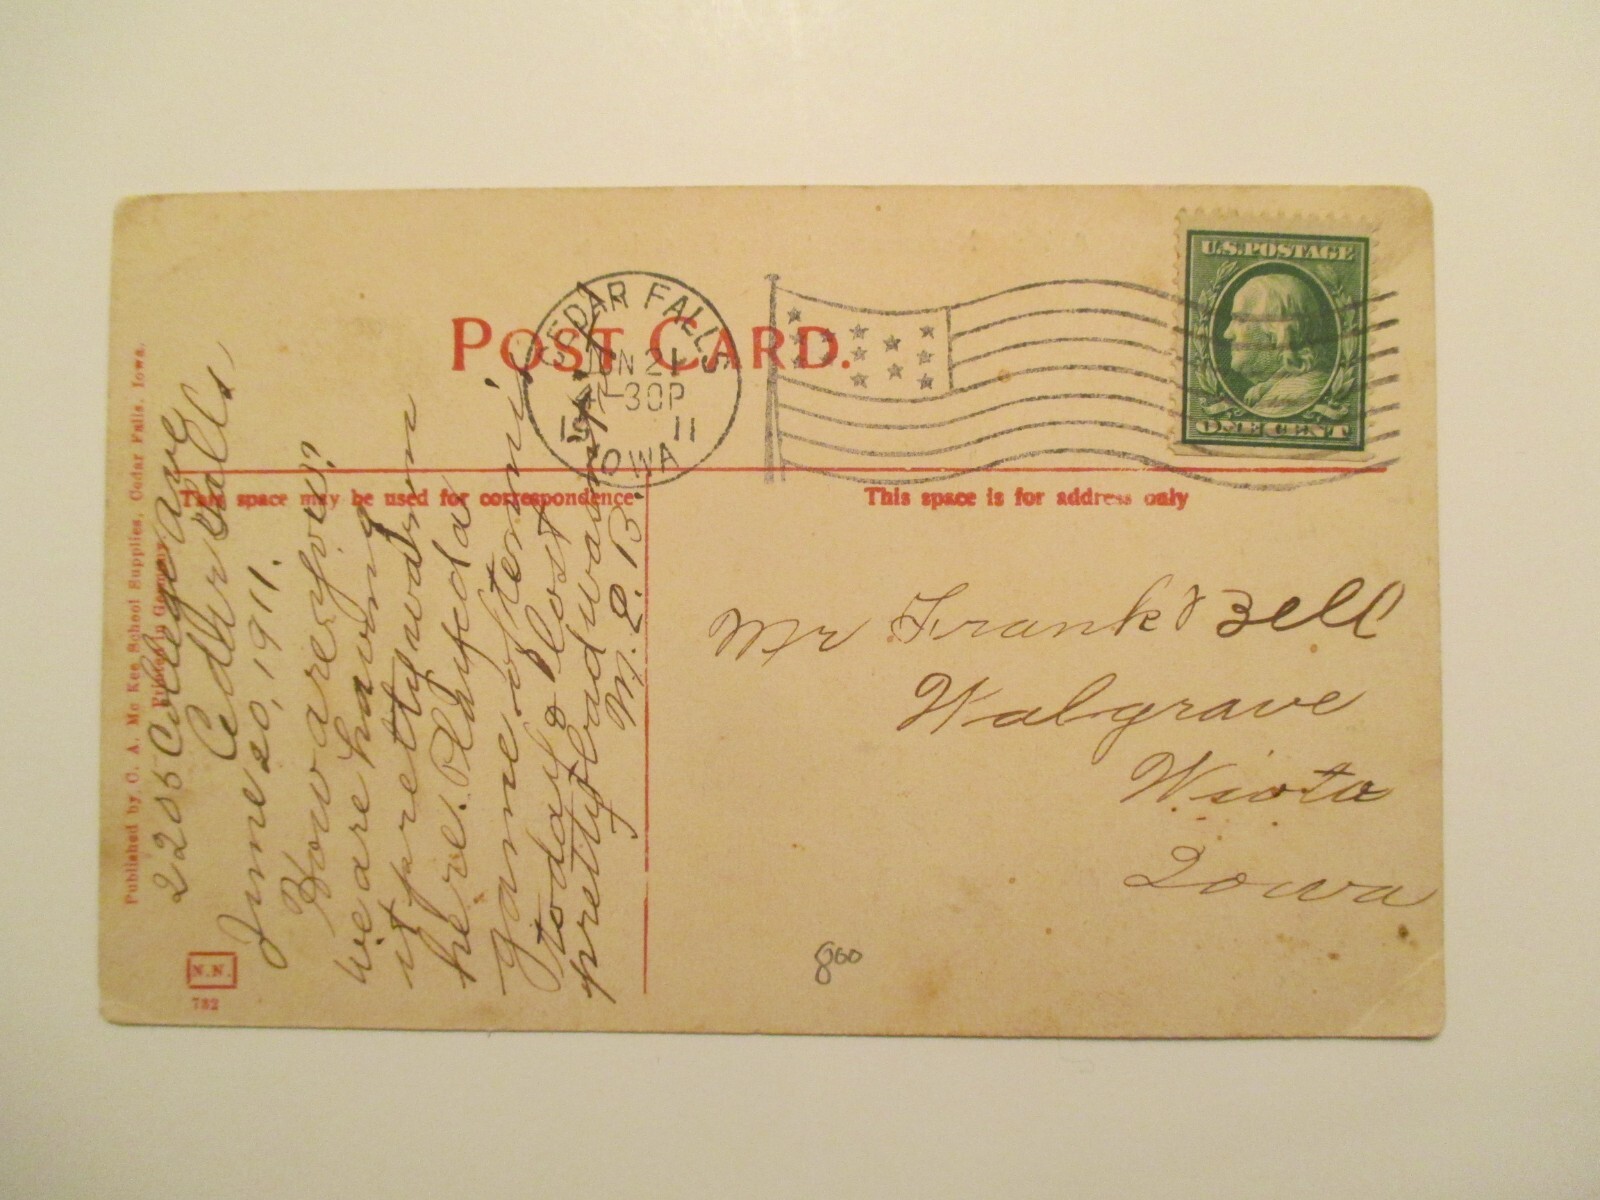 Published by C. A. Mc Kee School Supplies, Cedar Falls, Iowa.
Printed in Germany.
POST CARD.
CEDAR FALLS
JUN 21
4-30P
1911
IOWA
U.S.POSTAGE
ONE CENT
This space may be used for correspondence
This space is for address only
2205 College ave
Cedur Falls,
June 20, 1911.
How are you?
we are having
it pretty warm
here. Played a
game of tennis
today & lost
pretty badly
M. E. B.
Mr Frank Bell
Walgrave
Wiota
Iowa
N.N.
732
800